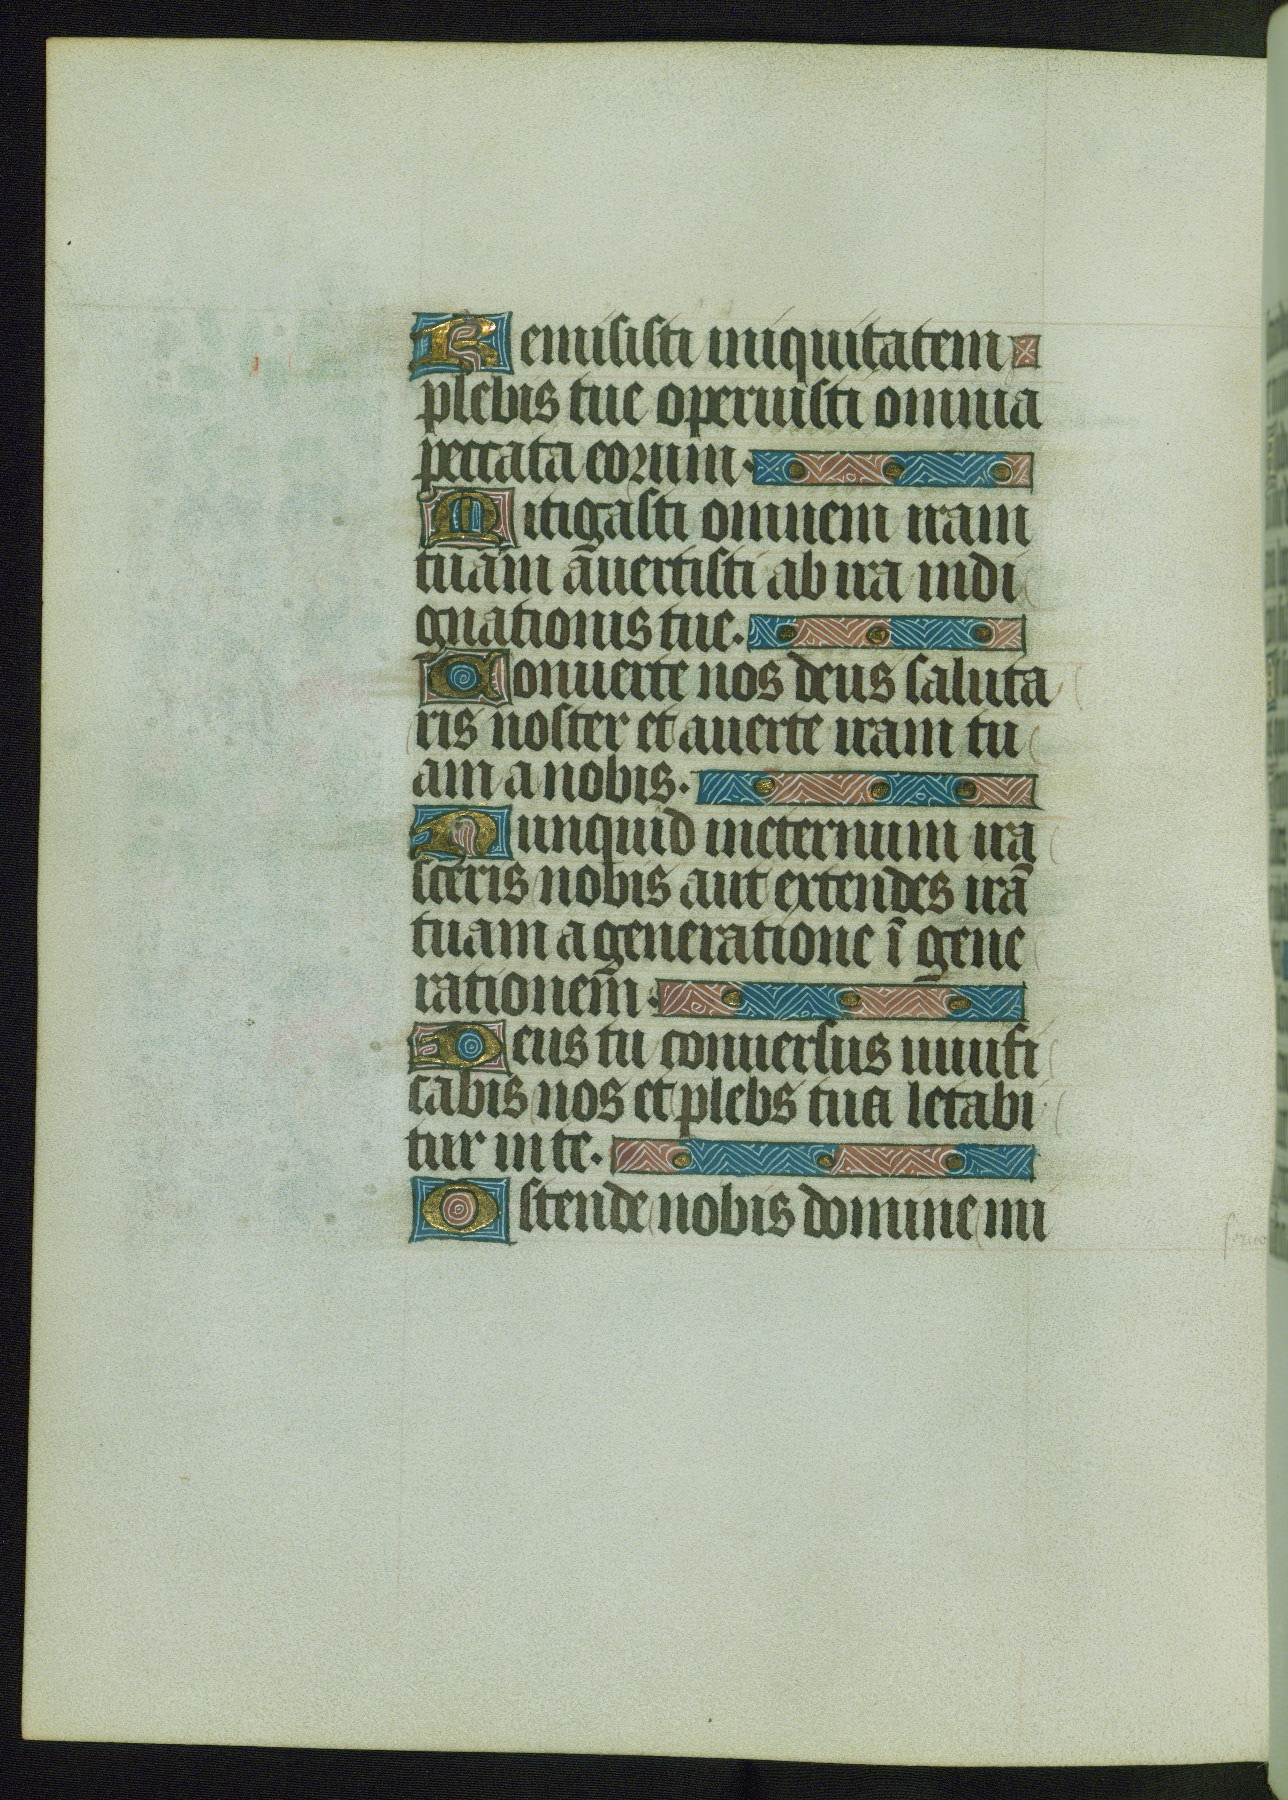 Remisisti iniquitatem
plebis tue operuisti omnia
peccata eorum.
Mitigasti omnem iram
tuam āuertisti ab ira indi
gnationis tue.
Conuerte nos deus saluta
ris noster et auerte iram tu
am a nobis.
Nunquid ineternum ira
sceris nobis aut extendes irā
tuam a generatione ī gene
rationem̄.
Deus tu conuersus uiuifi
cabis nos et plebs tua letabi
tur in te.
Ostende nobis domine mi